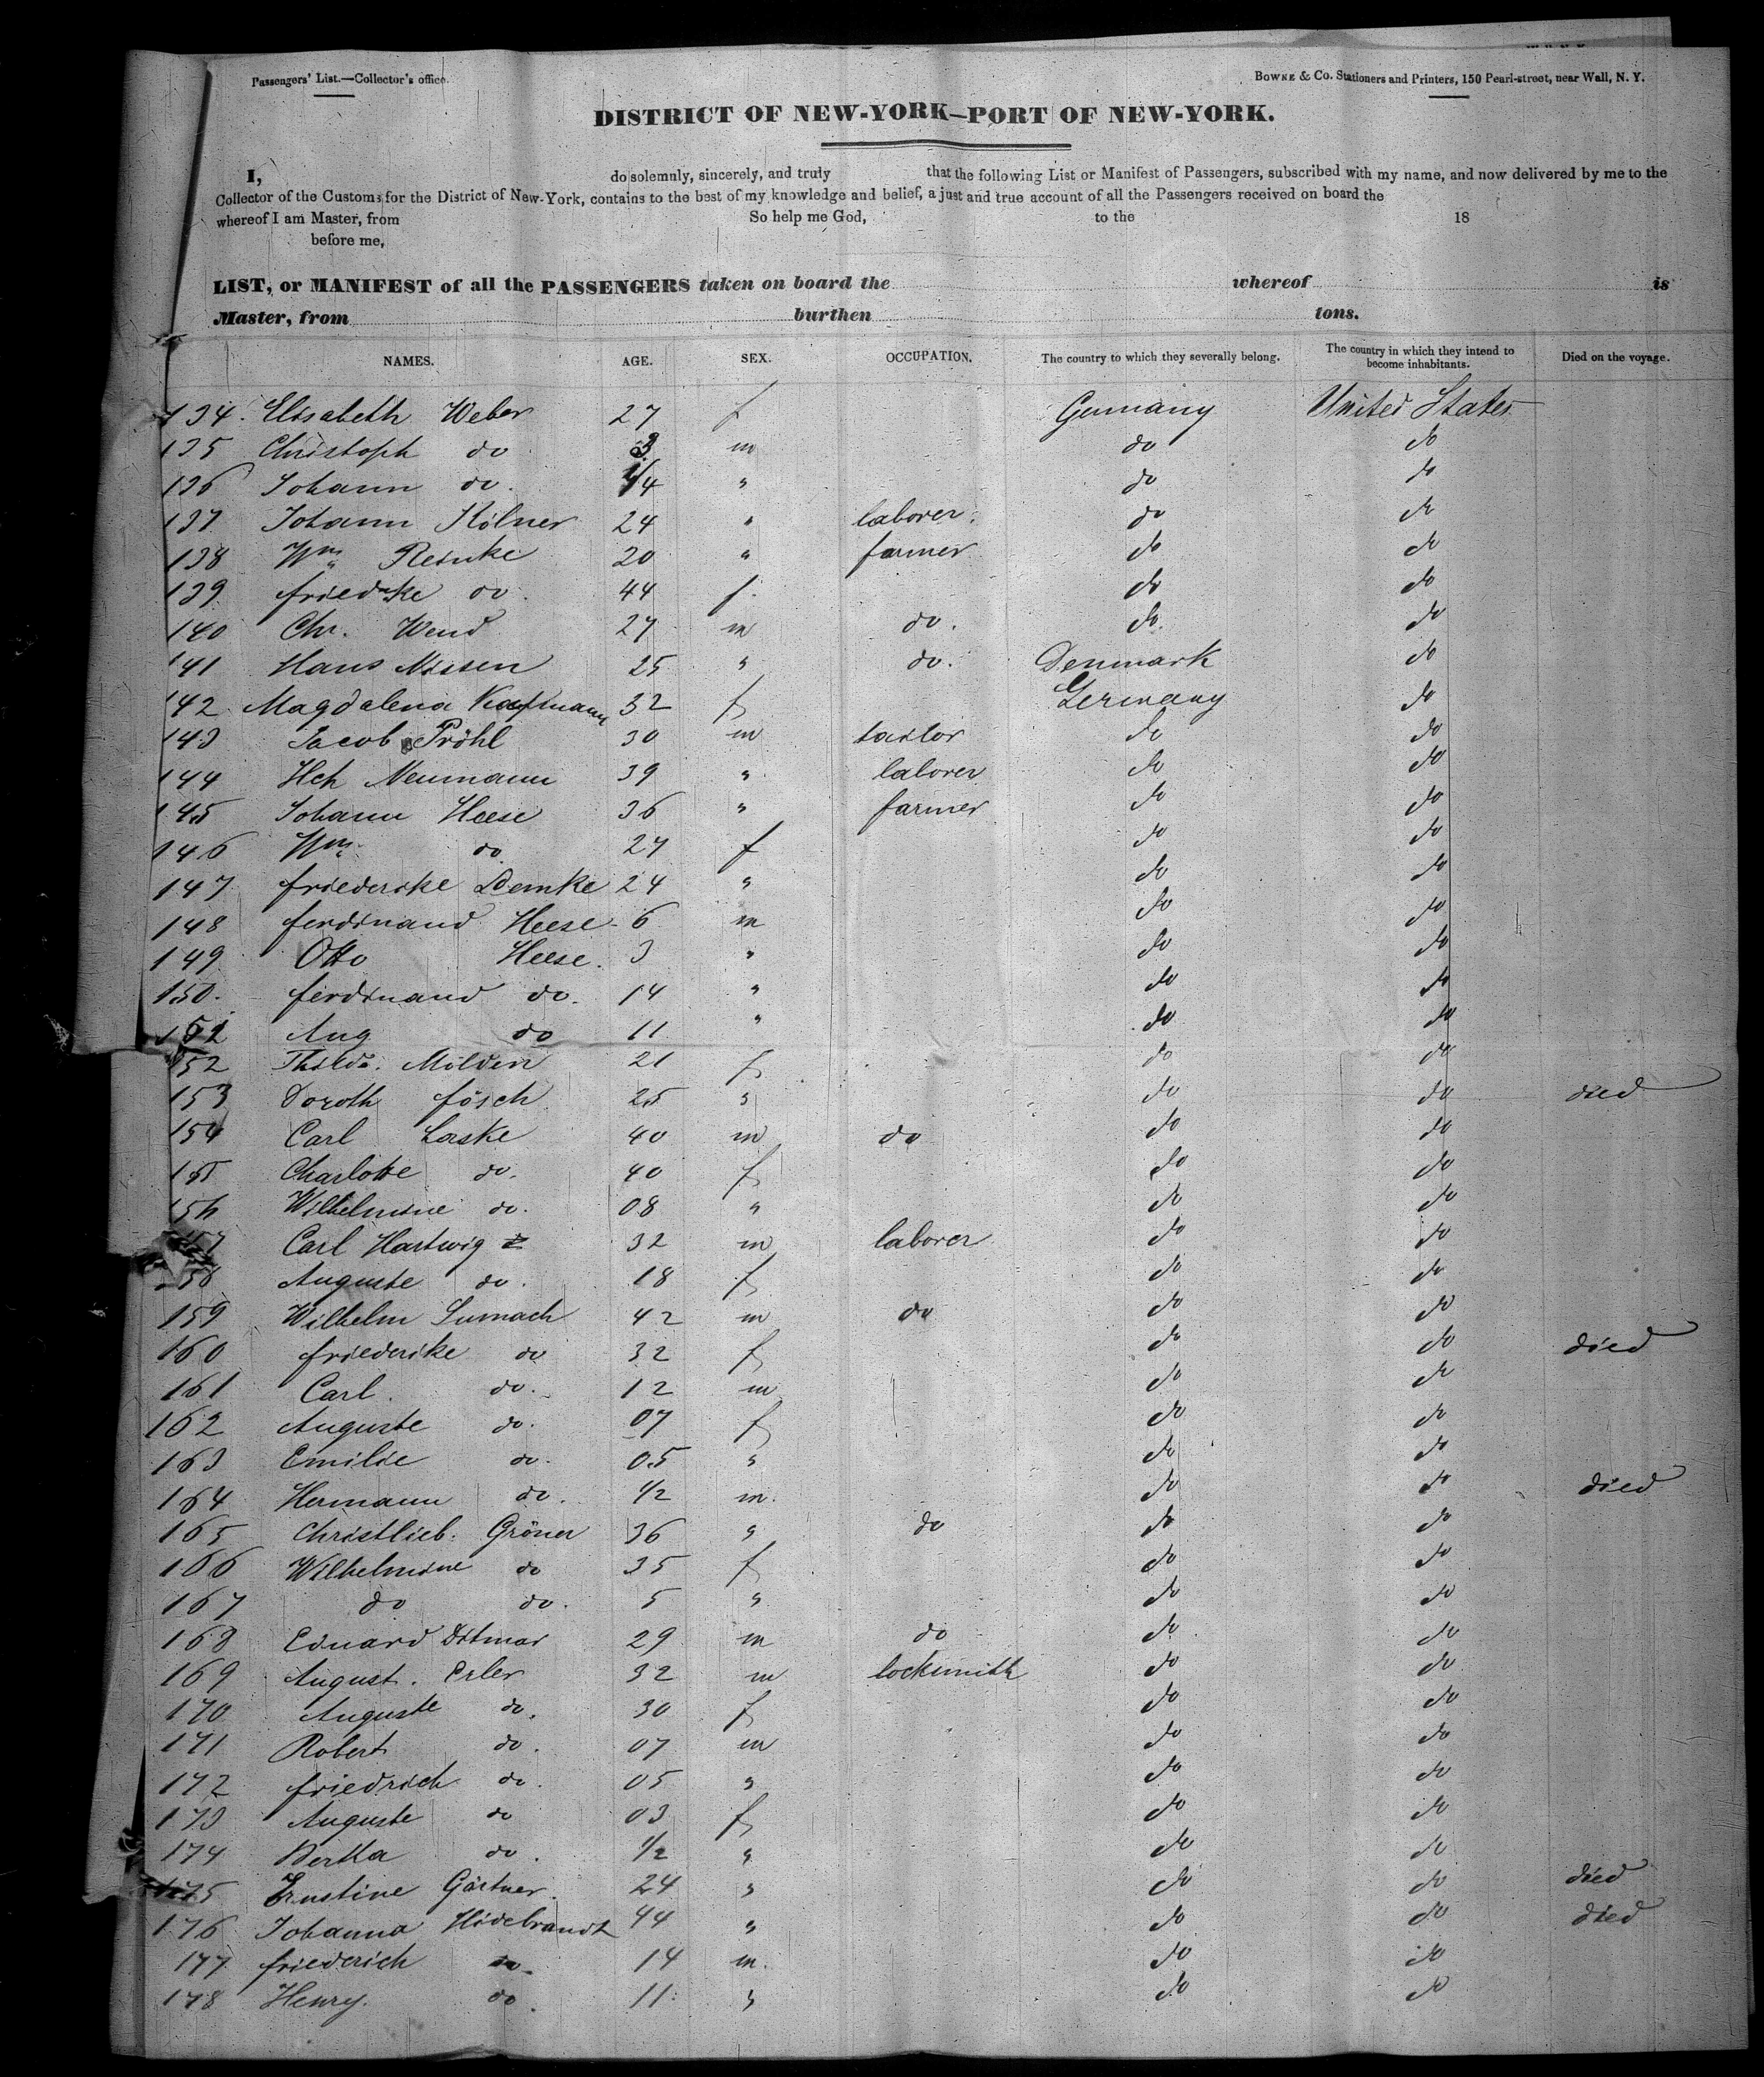 Passengers' List.—Collector's office.
BOWNE & Co. Stationers and Printers, 150 Pearl-street, near Wall, N. Y.
DISTRICT OF NEW-YORK—PORT OF NEW-YORK.
I, do solemnly, sincerely, and truly that the following List or Manifest of Passengers, subscribed with my name, and now delivered by me to the
Collector of the Customs for the District of New-York, contains to the best of my knowledge and belief, a just and true account of all the Passengers received on board the
whereof I am Master, from So help me God, to the 18
before me,
LIST, or MANIFEST of all the PASSENGERS taken on board the whereof is
Master, from burthen tons.
NAMES. AGE. SEX. OCCUPATION. The country to which they severally belong. The country in which they intend to become inhabitants. Died on the voyage.
134. Elisabeth Weber 27 f Germany United States
135 Christoph do 3 m do do
136 Johann do. 1/4 " do do
137 Johann Kölner 24 " laborer. do do
138 Wm Reinke 20 " farmer do do
139 friedrike do. 44 f. do do
140 Chr. Wend 27 m do. do. do
141 Hans Nissen 25 " do. Denmark do
142 Magdalena Kaufmann 32 f Germany do
143 Jacob Pröhl 30 m tailor do do
144 Hch Neumann 39 " laborer do do
145 Johann Heese 36 " farmer do do
146 Wm do 27 f do do
147 friederike Demke 24 " do do
148 ferdinand Heese 6 m do do
149 Otto Heese. 3 " do do
150. ferdinand do. 14 " do do
151 Aug do 11 " do do
152 Milden 21 f do do
153 Doroth fösch 25 " do do died
154 Carl Laske 40 m do do do
155 Charlotte do. 40 f do do
156 Wilhelmine do. 08 " do do
157 Carl Hartwig 32 m laborer do do
158 Auguste do. 18 f do do
159 Wilhelm Sumach 42 m do do do
160 friederike do 32 f do do died
161 Carl. do. 12 m do do
162 Auguste do. 07 f do do
163 Emilie do. 05 " do do
164 Hermann do. 1/2 m. do do died
165 Christlieb. Gröner 36 " do do do
166 Wilhelmine do 35 f do do
167 do do. 5 " do do
168 Eduard Ditmar 29 m do do do
169 August. Erler 32 m locksmith do do
170 Auguste do. 30 f do do
171 Robert do. 07 m do do
172 friedrich do. 05 " do do
173 Auguste do 03 f do do
174 Bertha do. 1/2 " do do
175 Ernstine Gärtner. 24 " do do died
176 Johanna Hildebrandt 44 " do do died
177 friederich do. 14 m. do do
178 Henry. do. 11. " do do